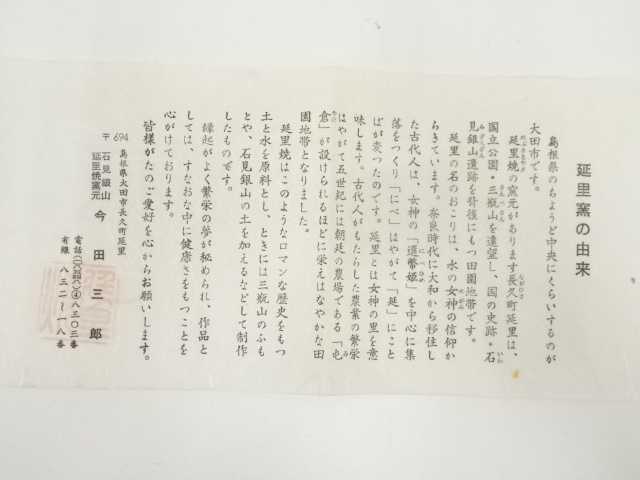 延里窯の由来
島根県のちようど中央にくらいするのが
大田市です。
延里焼の窯元があります長久町延里は、
国立公園・三瓶山を遠望し、国の史跡・石
見銀山遺跡を背後にもつ田園地帯です。
延里の名のおこりは、水の女神の信仰か
らきています。奈良時代に大和から移住し
た古代人は、女神の「邇幣姫」を中心に集
落をつくり「にべ」はやがて「延」にこと
ばが変つたのです。延里とは女神の里を意
味します。古代人がもたらした農業の繁栄
はやがて五世紀には朝廷の農場である「屯
倉」が設けられるほどに栄えはなやかな田
園地帯となりました。
延里焼はこのようなロマンな歴史をもつ
土と水を原料とし、ときには三瓶山のふも
とや、石見銀山の土を加えるなどして制作
したものです。
縁起がよく繁栄の夢が秘められ、作品と
しては、すなおな中に健康さをもつことを
心がけております。
皆様がたのご愛好を心からお願いします。
〒694 島根県大田市長久町延里
石見銀山
延里焼窯元 今田三郎
電話(〇八五四八)④八三〇三番
有線 八三二ー一八番